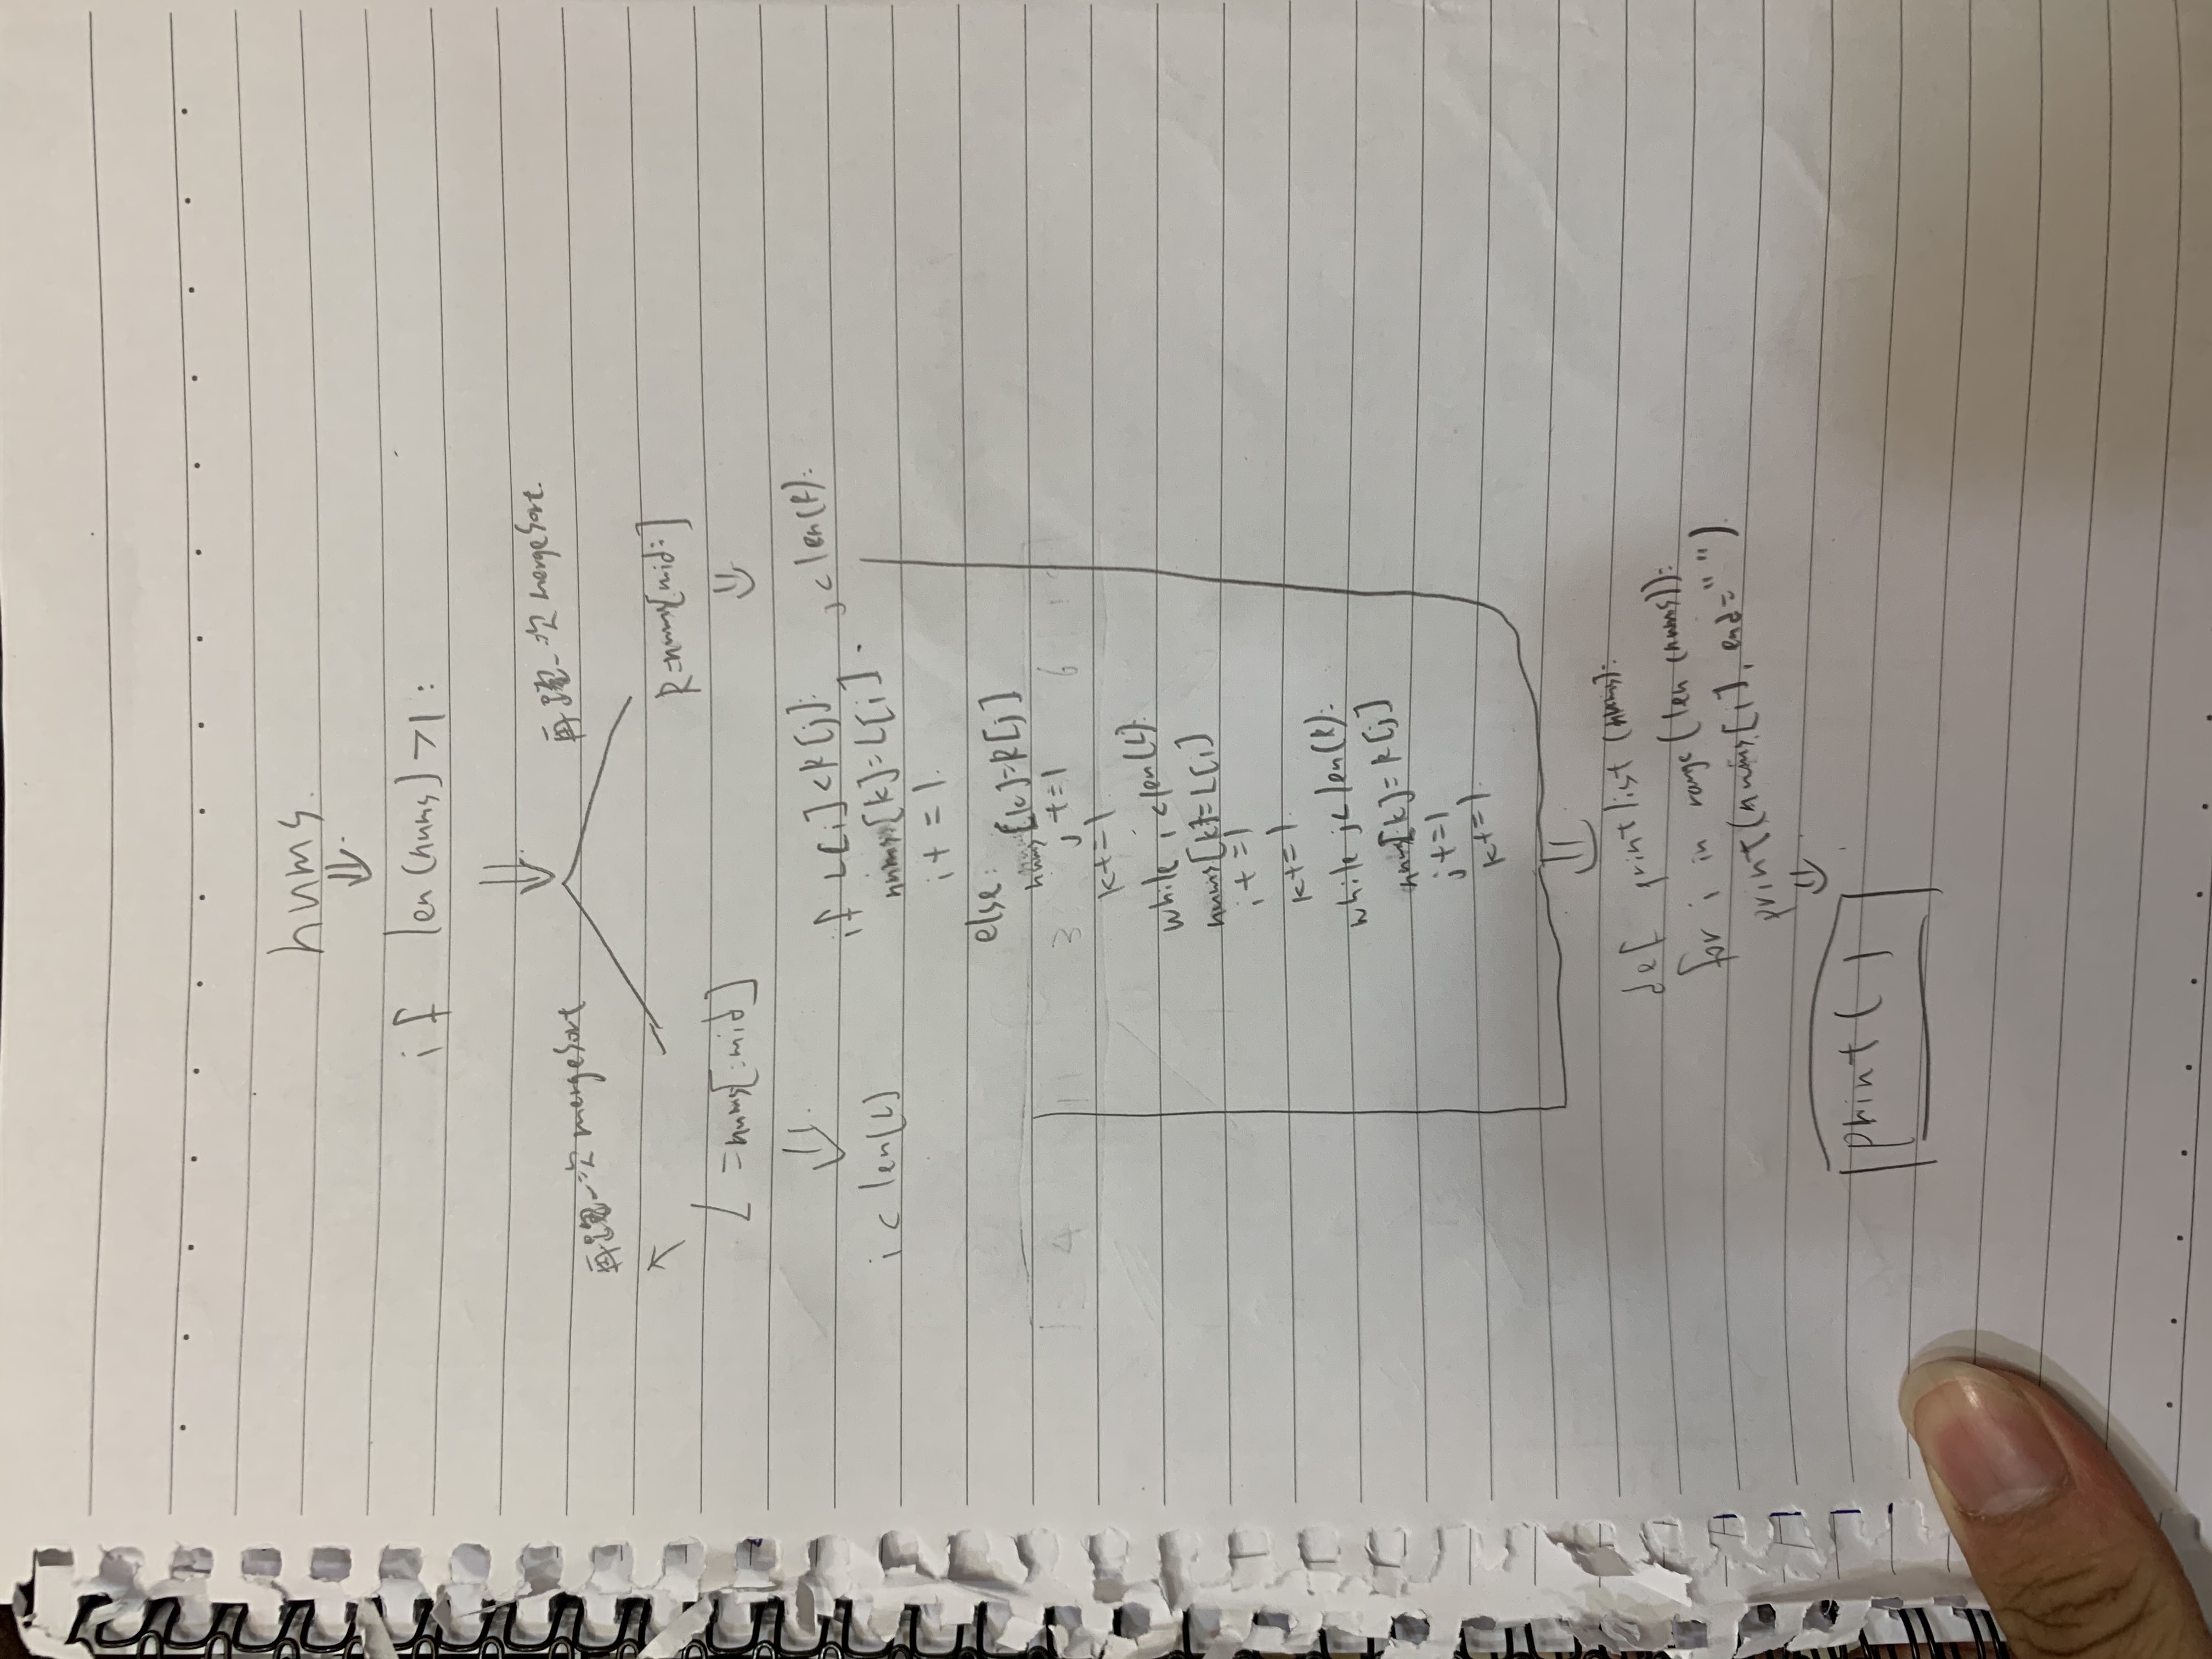 nums.
if len(nums)>1:
再跑一次mergeSort
再跑一次mergeSort.
L =nums[:mid]
R=nums[mid:]
i < len(L)
j < len(R):
if L[i]<R[j]:
nums[k]=L[i]
i+=1.
else:
nums[k]=R[j]
j+=1
k+=1
while i<len(L):
nums[k]=L[i]
i+=1
k+=1.
while j< len(R):
nums[k]=R[j]
j+=1
k+=1.
def printlist (nums):
for i in range(len(nums)):
print(nums[i], end=" ")
print( )
4 11 3 6